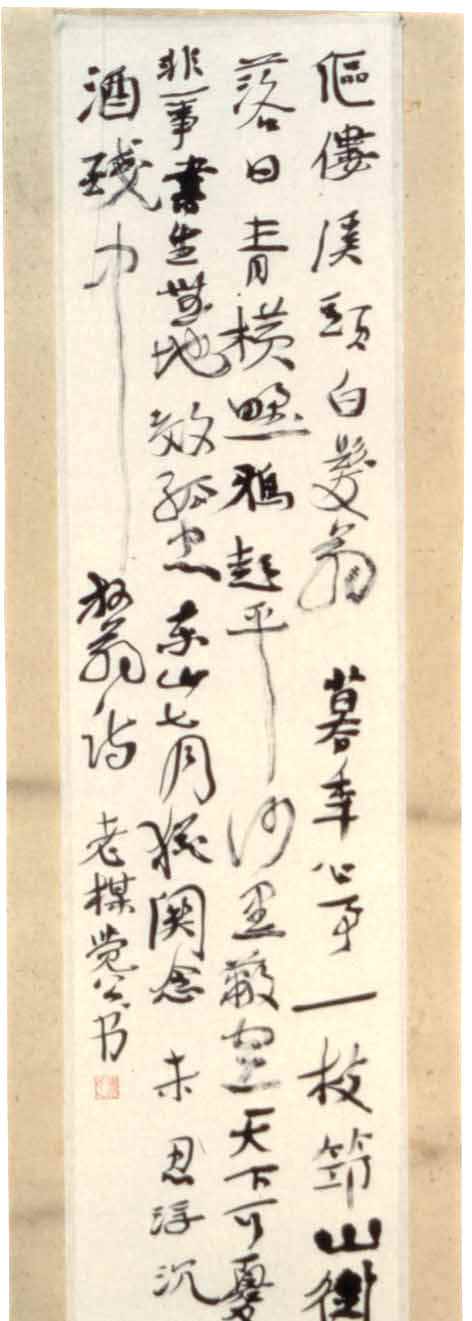 傴僂溪頭白髮翁 暮年心事一枝筇山銜
落日青橫野鴉起平沙黑蔽空天下可憂
非一事書生無地效孤忠東山七月猶関念未忍浮沉
酒琖中 放翁诗 老楳觉公书